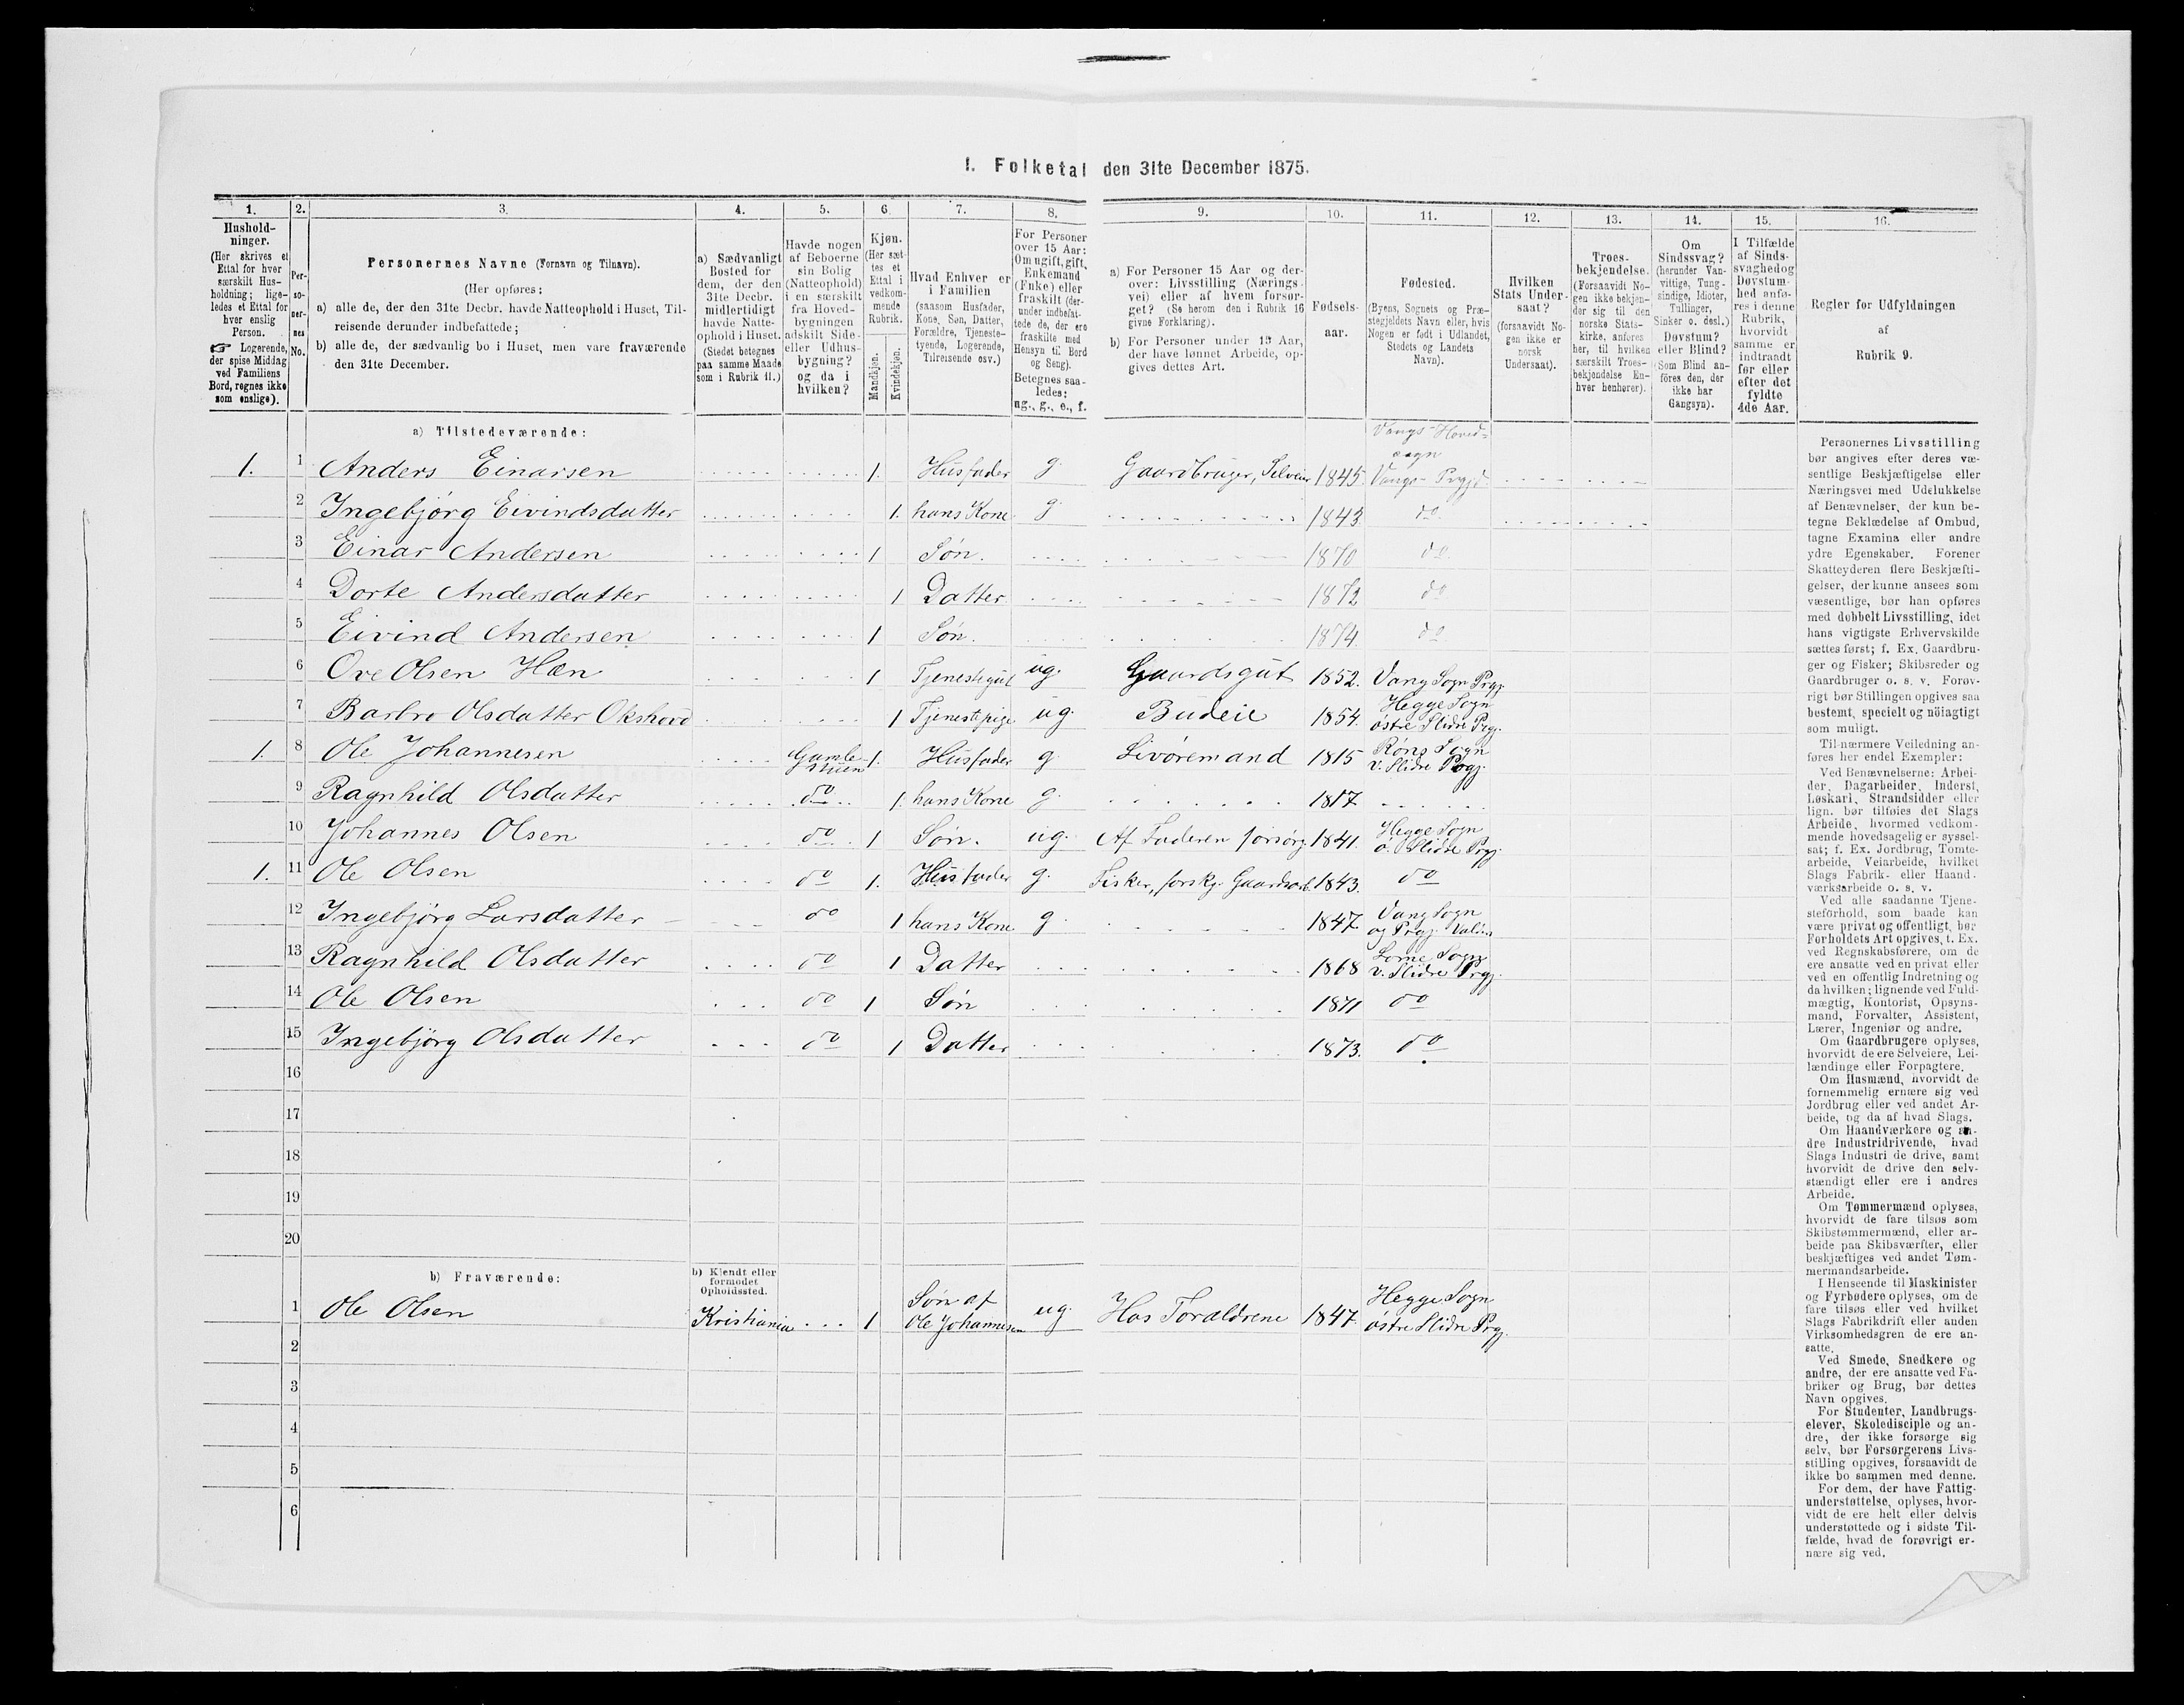 I. Folketal den 31te December 1875.
1. 2. 3. 4. 5. 6. 7. 8. 9. 10. 11. 12. 13. 14. 15. 16.
Hushold-
ninger.
(Her skrives et
Ettal for hver
særskilt Hus-
holdning; lige-
ledes et Ettal for
hver enslig
Person.
☞ Logerende,
der spise Middag
ved Familiens
Bord, regnes ikke
som enslige).
Per-
so-
ner-
nes
No.
Personernes Navne (Fornavn og Tilnavn).
(Her opføres:
a) alle de, der den 31te Decbr. havde Natteophold i Huset, Til-
reisende derunder indbefattede;
b) alle de, der sædvanlig bo i Huset, men vare fraværende
den 31te December.
a) Sædvanligt
Bosted for
dem, der den
31te Decbr.
midlertidigt
havde Natte-
ophold i Huset.
(Stedet betegnes
paa samme Maade
som i Rubrik 11.)
Havde nogen
af Beboerne
sin Bolig
(Natteophold)
i en særskilt
fra Hoved-
bygningen
adskilt Side-
eller Udhus-
bygning?
og da i
hvilken?
Kjøn.
(Her sæt-
tes et
Ettal i
vedkom-
mende
Rubrik.
Mandkjøn.
Kvindekjøn.
Hvad Enhver er
i Familien
(saasom Husfader,
Kone, Søn, Datter,
Forældre, Tjeneste-
tyende, Logerende,
Tilreisende osv.)
For Personer
over 15 Aar:
Om ugift, gift,
Enkemand
(Enke) eller
fraskilt (der-
under indbefat-
tede de, der ere
fraskilte med
Hensyn til Bord
og Seng).
Betegnes saa-
ledes:
ug., g., e., f.
a) For Personer 15 Aar og der-
over: Livsstilling (Nærings-
vei) eller af hvem forsør-
get? (Se herom den i Rubrik 16
givne Forklaring).
b) For Personer under 15 Aar,
der have lønnet Arbeide, op-
gives dettes Art.
Fødsels-
aar.
Fødested.
(Byens, Sognets og Præ-
stegjeldets Navn eller, hvis
Nogen er født i Udlandet,
Stedets og Landets
Navn).
Hvilken
Stats Under-
saat?
(forsaavidt No-
gen ikke er
norsk
Undersaat).
Troes-
bekjendelse.
(Forsaavidt No-
gen ikke bekjen-
der sig til den
norske Stats-
kirke, anføres
her, til hvilken
særskilt Troes-
bekjendelse En-
hver henhører).
Om
Sindssvag?
(herunder Van-
vittige, Tung-
sindige, Idioter,
Tullinger,
Sinker o. desl.)
Døvstum?
eller Blind?
(Som Blind an-
føres den, der
ikke har
Gangsyn).
I Tilfælde
af Sinds-
svaghed og
Døvstum-
hed anfø-
res i denne
Rubrik,
hvorvidt
samme er
indtraadt
før eller
efter det
fyldte
4de Aar.
Regler for Udfyldningen
af
Rubrik 9.
a) Tilstedeværende:
Vangs Hoved-
sogn
1. 1 Anders Einarsen 1. Husfader g. Gaardbruger, Selveier 1845 Vangs Prgjd.
2 Ingebjørg Eivindsdatter 1. hans Kone g. 1843. do
3 Einar Andersen 1 Søn. 1870 do
4 Dorte Andersdatter 1 Datter 1872 do
5 Eivind Andersen 1 Søn. 1874. do
6 Ove Olsen Hæn 1 Tjenestegut ug. Gaardsgut 1852. Vang Sogn Prgj.
7 Barbro Olsdatter Okshovd 1 Tjenestepige ug. Budeie 1854. Hegge Sogn
østre Slidre Prgj.
1. 8 Ole Johannesen Gamle
stuen 1. Husfader g. Livøremand 1815 Røns Sogn
v. Slidre Prgj.
9 Ragnhild Olsdatter do 1. hans Kone g. 1817
10 Johannes Olsen do 1 Søn. ug. Af Faderen forsørg. 1841. Hegge Sogn
ø. Slidre Prgj.
1. 11 Ole Olsen do 1. Husfader g. Fisker, forskj. Gaardsarb. 1843. do
12 Ingebjørg Larsdatter do 1 hans Kone g. 1847. Vang Sogn
og Prgj.
13 Ragnhild Olsdatter do 1 Datter 1868 Lome Sogn
v. Slidre Prgj.
14 Ole Olsen do 1 Søn 1871 do
15 Ingebjørg Olsdatter do 1 Datter 1873. do
16
17
18
19
20
b) Fraværende:
b) Kjendt eller
formodet
Opholdssted.
1 Ole Olsen Kristiania 1 Søn af
Ole Johannesen ug. Hos Foraldrene 1847. Hegge Sogn
østre Slidre Prgj.
2
3
4
5
6
Personernes Livsstilling
bør angives efter deres væ-
sentlige Beskjæftigelse eller
Næringsvei med Udelukkelse
af Benævnelser, der kun be-
tegne Beklædelse af Ombud,
tagne Examina eller andre
ydre Egenskaber. Forener
Skatteyderen flere Beskjæfti-
gelser, der kunne ansees som
væsentlige, bør han opføres
med dobbelt Livsstilling, idet
hans vigtigste Erhvervskilde
sættes først; f. Ex. Gaardbru-
ger og Fisker; Skibsreder og
Gaardbruger o. s. v. Forøv-
rigt bør Stillingen opgives saa
bestemt, specielt og nøiagtigt
som muligt.
Til nærmere Veiledning an-
føres her endel Exempler:
Ved Benævnelserne: Arbei-
der, Dagarbeider, Inderst,
Løskari, Strandsidder eller
lign. bør tilføies det Slags
Arbeide, hvormed vedkom-
mende hovedsagelig er syssel-
sat; f. Ex. Jordbrug, Tomte-
arbeide, Veiarbeide, hvilket
Slags Fabrik- eller Haand-
værksarbeide o. s. v.
Ved alle saadanne Tjene-
steforhold, som baade kan
være privat og offentligt, bør
Forholdets Art opgives, t. Ex.
ved Regnskabsførere, om de
ere ansatte ved en privat eller
ved en offentlig Indretning og
da hvilken; lignende ved Fuld-
mægtig, Kontorist, Opsyns-
mand, Forvalter, Assistent,
Lærer, Ingeniør og andre.
Om Gaardbrugere oplyses,
hvorvidt de ere Selveiere, Lei-
lændinge eller Forpagtere.
Om Husmænd, hvorvidt de
fornemmelig ernære sig ved
Jordbrug eller ved andet Ar-
beide, og da af hvad Slags.
Om Haandværkere og an-
dre Industridrivende, hvad
Slags Industri de drive, samt
hvorvidt de drive den selv-
stændigt eller ere i andres
Arbeide.
Om Tømmermænd oplyses,
hvorvidt de fare tilsøs som
Skibstømmermænd, eller ar-
beide paa Skibsværfter, eller
beskjæftiges ved andet Tøm-
mermandsarbeide.
I Henseende til Maskinister
og Fyrbødere oplyses, om de
fare tilsøs eller ved hvilket
Slags Fabrikdrift eller anden
Virksomhedsgren de ere an-
satte.
Ved Smede, Snedkere og
andre, der ere ansatte ved Fa-
briker og Brug, bør dettes
Navn opgives.
For Studenter, Landbrugs-
elever, Skoledisciple og an-
dre, der ikke forsørge sig
selv, bør Forsørgerens Livs-
stilling opgives, forsaavidt de
ikke bo sammen med denne.
For dem, der have Fattig-
understøttelse, oplyses, hvor-
vidt de ere helt eller delvis
understøttede og i sidste Til-
fælde, hvad de forøvrigt er-
nære sig ved.